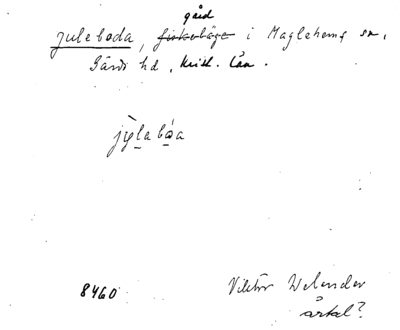 gård
juleboda, fiskeläge i Maglehems sn,
Gärds hd, Krist. län.
jylabóa
8460
Viktor Welander
årtal?